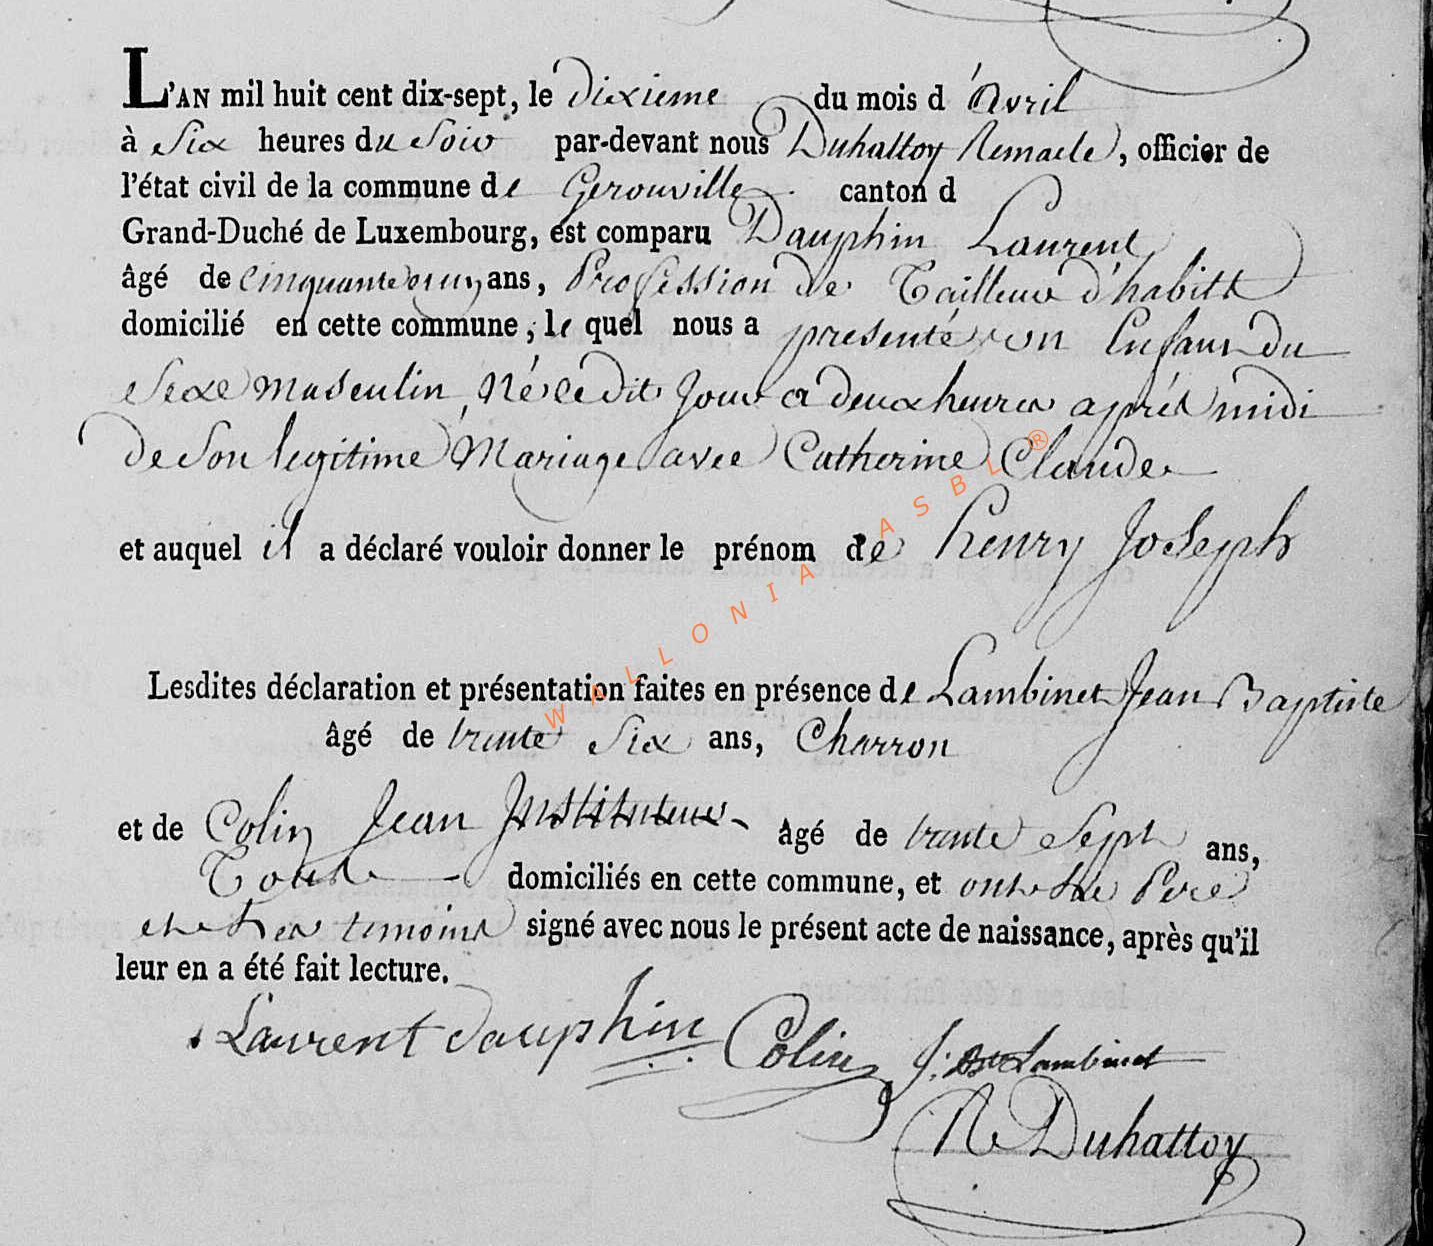 L'AN mil huit cent dix-sept, le dixieme du mois d'Avril
à Six heures du Soir par-devant nous Duhattoy Remacle, officier de
l'état civil de la commune de Gerouville canton d
Grand-Duché de Luxembourg, est comparu Dauphin Laurent
âgé de cinquante onz ans, Profession de Tailleur d'habits
domicilié en cette commune, le quel nous a presenté un Enfant du
Sexe Masculin, Né ce dit Jour a deux heures aprés midi
de Son legitime Mariage avec Catherine Claude
et auquel il a déclaré vouloir donner le prénom de henry Joseph
Lesdites déclaration et présentation faites en présence de Lambinet Jean Baptiste
âgé de trente Six ans, Charron
et de Colin Jean Instituteur âgé de trente Sept ans,
Tous domiciliés en cette commune, et ont le Pere
et les temoins signé avec nous le présent acte de naissance, après qu'il
leur en a été fait lecture.
Laurent dauphin Colin J: Bte Lambinet
R Duhattoy
WALLONIA ASBL ®